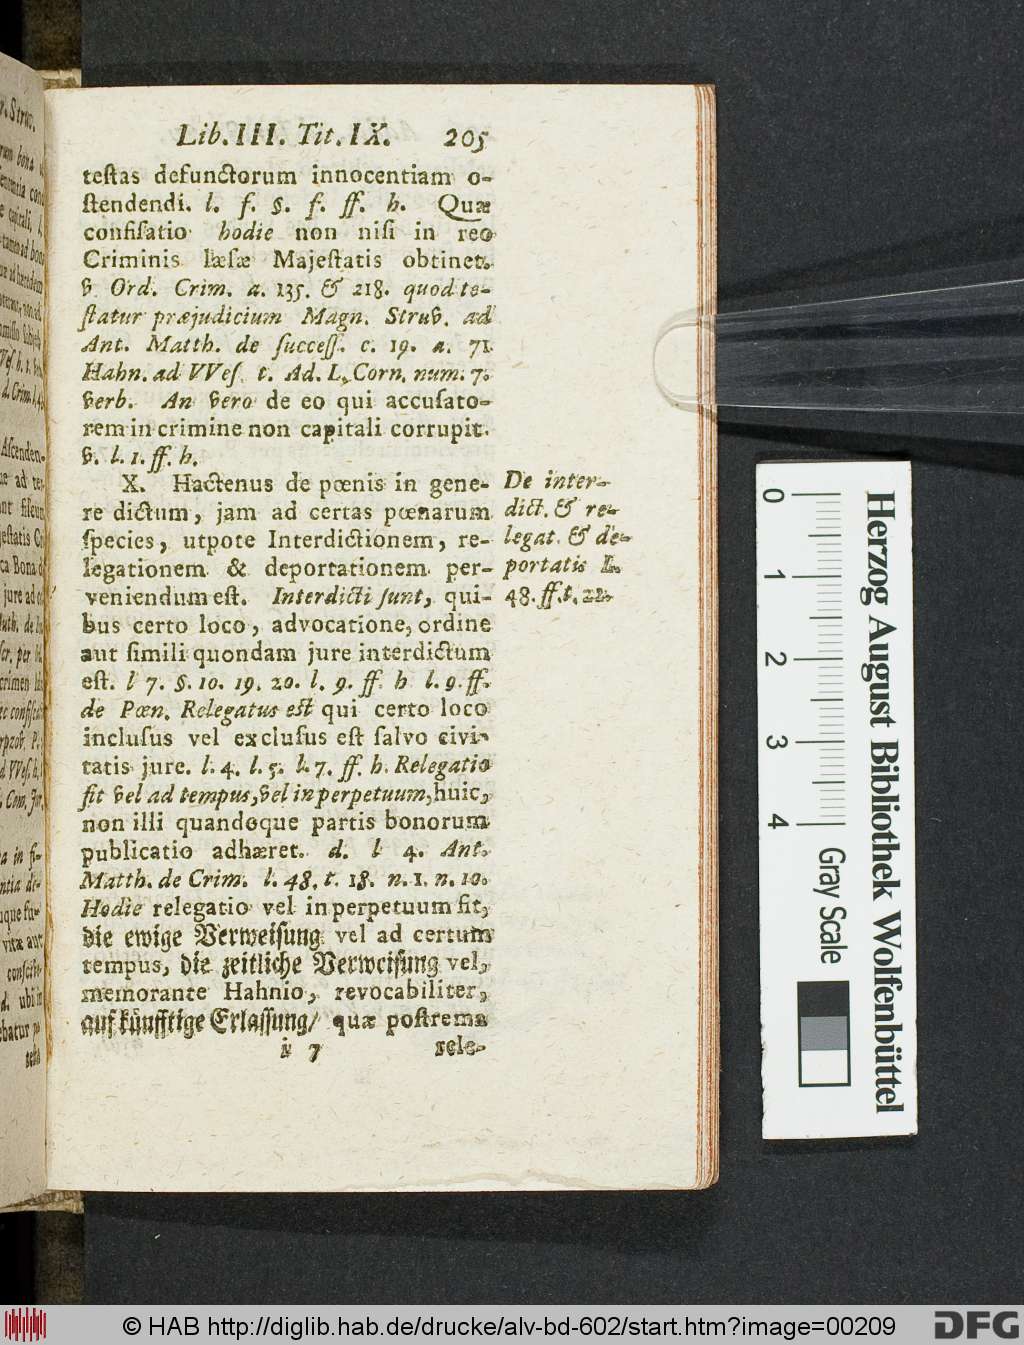 Lib. III. Tit. IX. 205
testas defunctorum innocentiam o-
stendendi. l. f. §. f. ff. h. Quæ
confisatio hodie non nisi in reo
Criminis læsæ Majestatis obtinet.
v. Ord. Crim. a. 135. & 218. quod te-
statur præjudicium Magn. Struv. ad
Ant. Matth. de success. c. 19. a. 71.
Hahn. ad VVes. t. Ad. L. Corn. num. 7.
verb. An vero de eo qui accusato-
rem in crimine non capitali corrupit.
v. l. 1. ff. h.
X. Hactenus de pœnis in gene-
re dictum, jam ad certas pœnarum
species, utpote Interdictionem, re-
legationem & deportationem per-
veniendum est. Interdicti sunt, qui-
bus certo loco, advocatione, ordine
aut simili quondam jure interdictum
est. l 7. §. 10. 19. 20. l. 9. ff. h l. 9. ff.
de Pœn. Relegatus est qui certo loco
inclusus vel exclusus est salvo civi-
tatis jure. l. 4. l. 5. l. 7. ff. h. Relegatio
fit vel ad tempus, vel in perpetuum, huic,
non illi quandoque partis bonorum
publicatio adhæret. d. l 4. Ant.
Matth. de Crim. l. 48. t. 18. n. 1. n. 10.
Hodie relegatio vel in perpetuum fit,
die ewige Verweisung vel ad certum
tempus, die zeitliche Verweisung vel,
memorante Hahnio, revocabiliter,
auf künfftige Erlassung/ quæ postrema
7 rele-
De inter-
dict. & re-
legat. & de-
portatis L.
48. ff. t. 22.
0 1 2 3 4
Gray Scale
Herzog August Bibliothek Wolfenbüttel
© HAB http://diglib.hab.de/drucke/alv-bd-602/start.htm?image=00209
DFG